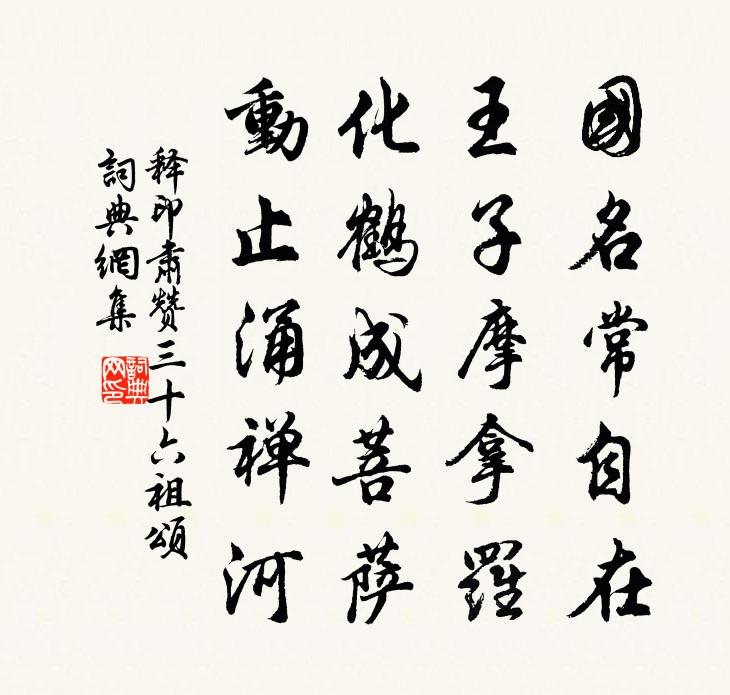 國名常自在
王子摩拿羅
化鶴成菩薩
動止涌禅河
释印肅赞三十六祖頌
詞典網集
詞典网印